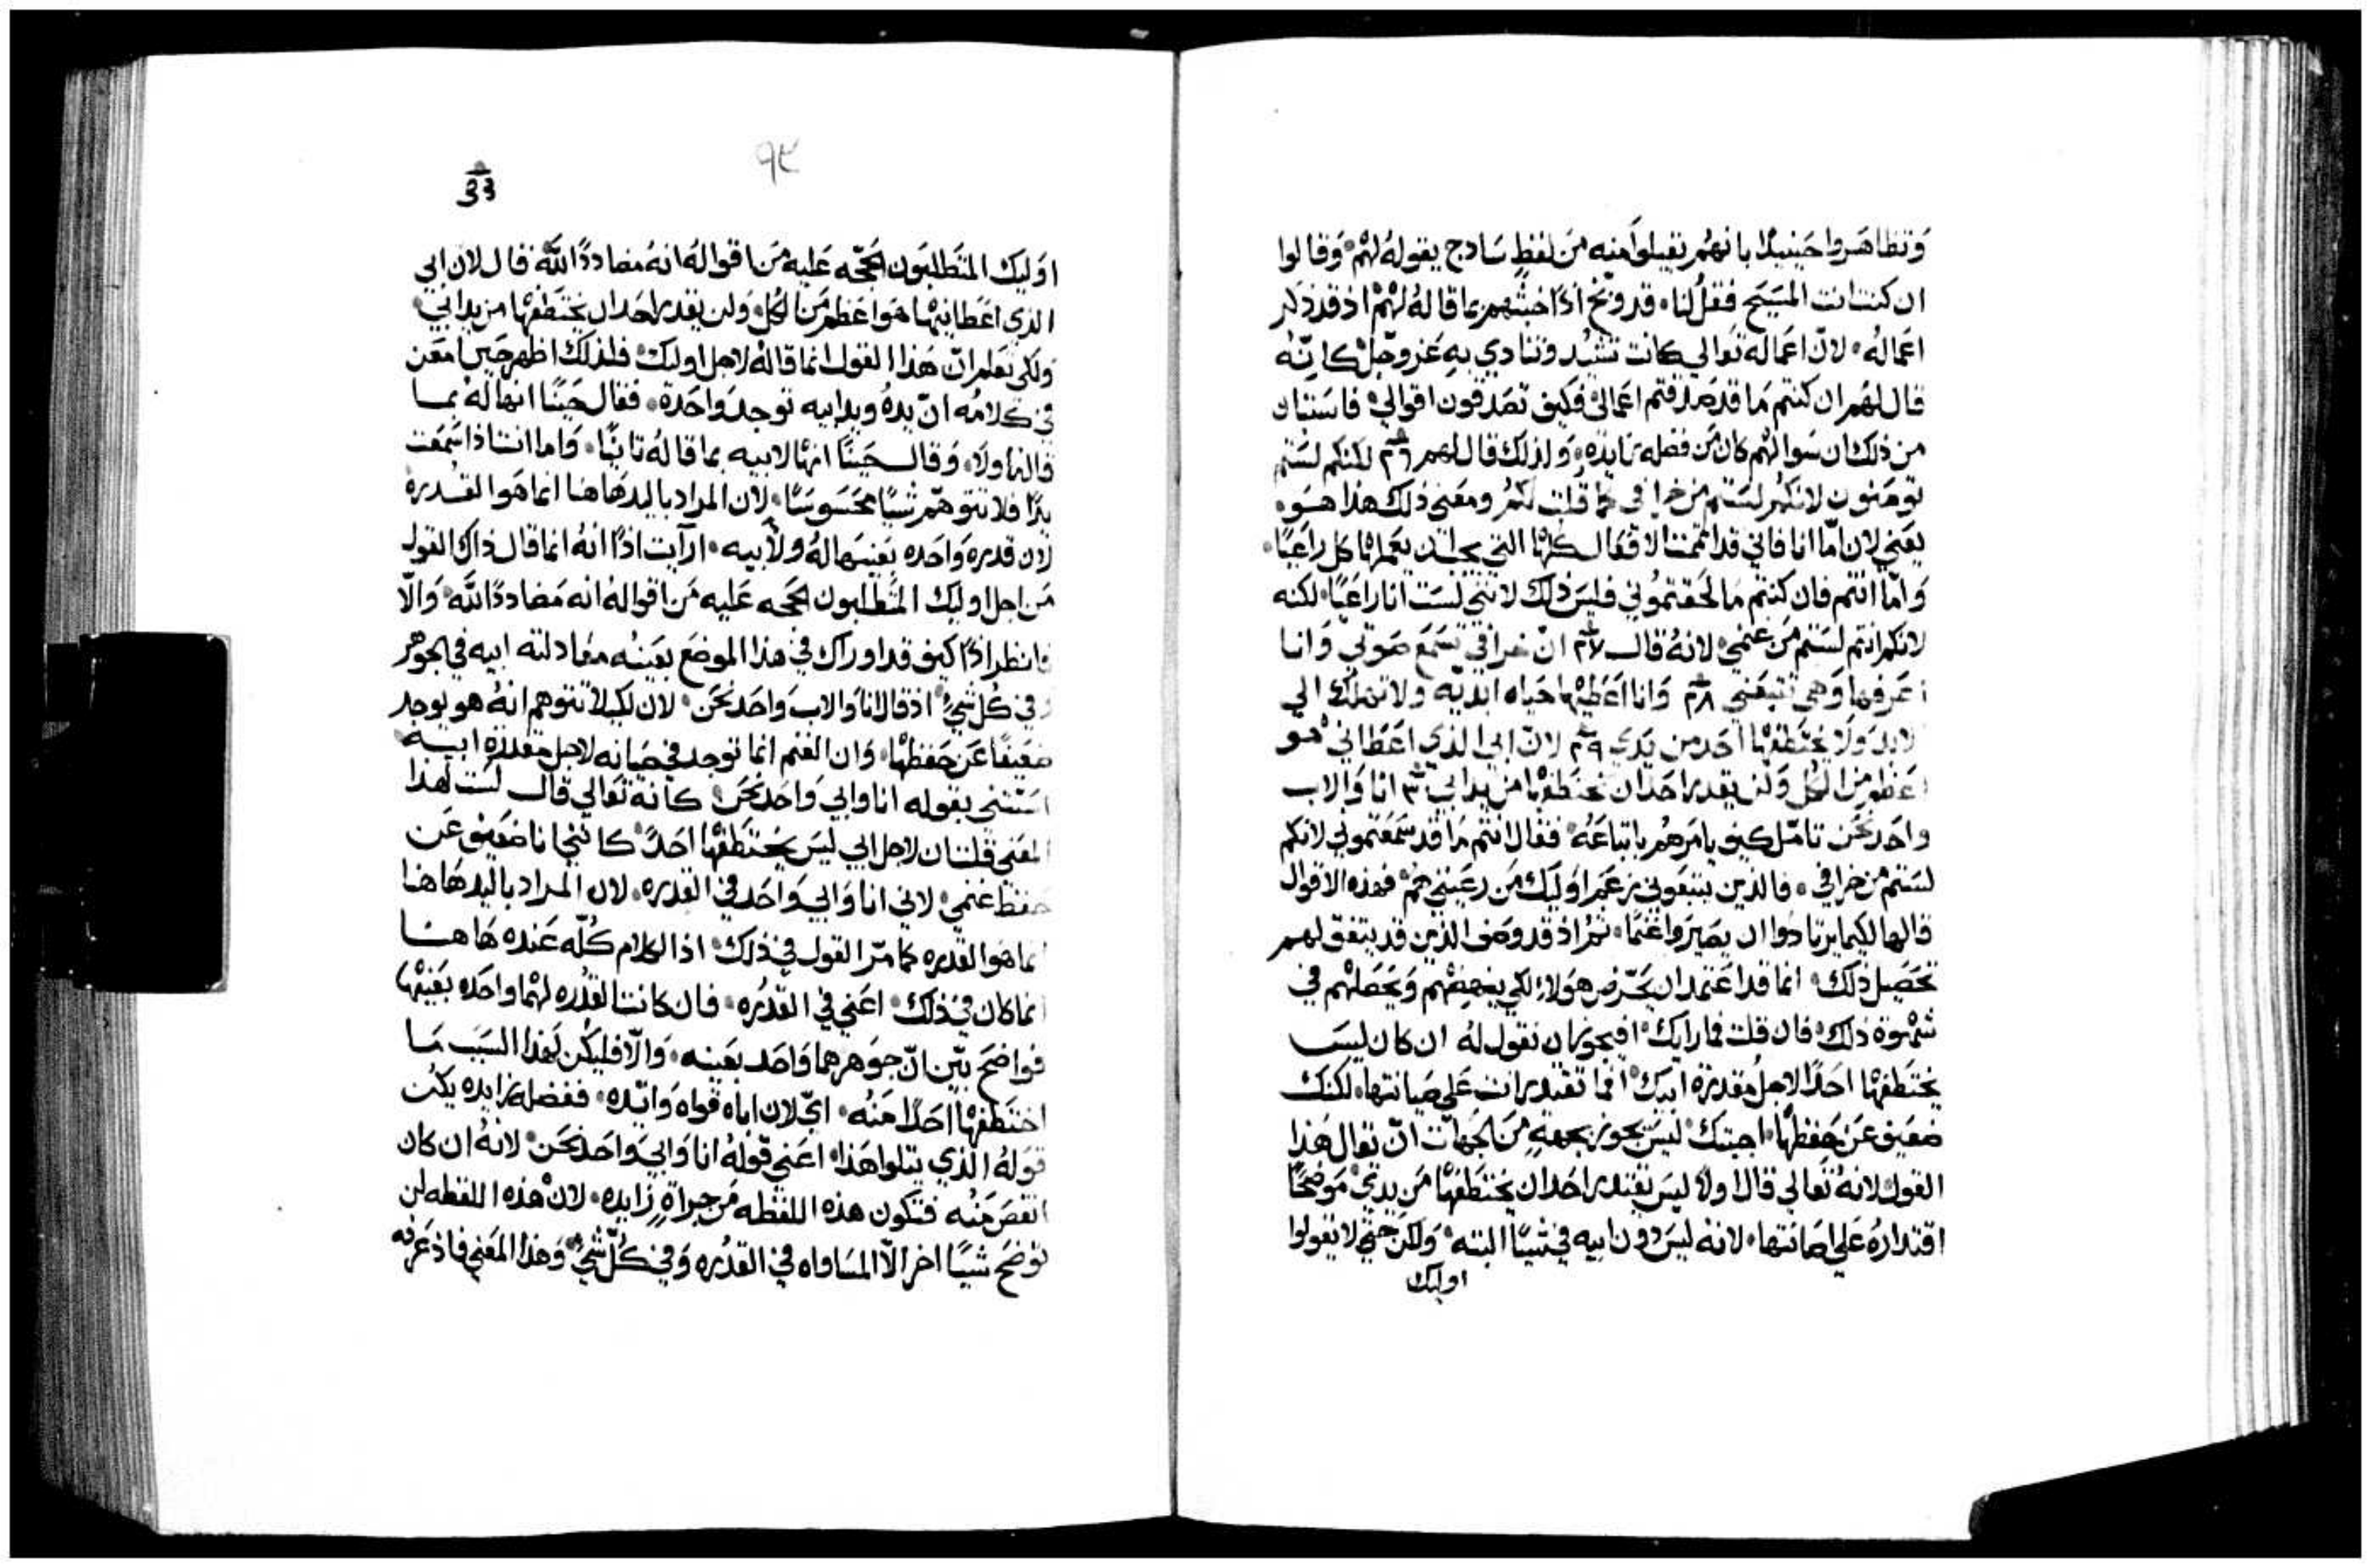 وتظاهروا حينيذا بانهم يقبلوا منه من لفظ سادج يقوله لهم وقالوا
ان كنت انت المسيح فقل لنا قد وبخ اذا خبثهم بما قاله لهم اذ قد ذكر
اعماله لان اعماله تعالي كانت تشيد وتنادي به عز وجل كانه
قال لهم ان كنتم ما قد صدقتم اعمالي فكيف تصدقون اقوالي فاستبان
من ذلك ان سوالهم كان من فضله زايده ولذلك قال لهم ٢٦ لكنكم لستم
تومنون لانكم لستم من خرافي كما قلت لكم ومعني ذلك هذا هو
يعني لان اما انا فاني قد اتممت الافعال كلها التي يجب ان يعملها كل راعيا
واما انتم فان كنتم ما لحقتموني فليس ذلك لانني لست انا راعيا لكنه
لانكم انتم لستم من غنمي لانه قال ٢٧ ان خرافي تسمع صوتي وانا
اعرفها وهي تتبعني ٢٨ وانا اعطيها حياه ابديه ولا تهلك الي
الابد ولا يختطفها احد من يدي ٢٩ لان ابي الذي اعطاني هو
اعظم من الكل ولن يقدر احد ان يختطفها من يد ابي ٣٠ انا والاب
واحد نحن تامل كيف يامرهم باتباعه فقال انتم ما قد سمعتموني لانكم
لستم من خرافي فالذين يتبعوني زعم اوليك من رعيتي هم فهذه الاقوال
قالها لكيما يرتادوا ان يصيروا غنما ثم اذ قد وصف الذين قد يتفق لهم
تحصيل ذلك انما قد اعتمد ان يحرض هولاء لكي ينهضهم ويحصلهم في
شهوة ذلك فان قلت فما رايك افيجوز ان نقول له ان كان ليس
يختطفها احدا لاجل مقدرة ابيك افما تقتدر انت علي صيانتها لكنك
ضعيف عن حفظها اجبتك ليس يجوز بجهة من الجهات ان تقال هذا
القول لانه تعالي قال اولا ليس يقتدر احد ان يختطفها من يدي موضحا
اقتداره علي صيانتها لانه ليس دون ابيه في شيا البته ولكن حتي لا يقولوا
اوليك
٩٣
33
اوليك المتطلبون الحجه عليه من اقواله انه مضاددا لله قال لان ابي
الذي اعطانيها هو اعظم من الكل ولن يقدر احد ان يختطفها من يد ابي
ولكي تعلم ان هذا القول انما قاله لاجل اوليك فلذلك اظهر حين امعن
في كلامه ان يده ويد ابيه توجد واحدة فقال حينا انها له بما
قاله اولا وقال حينا انها لابيه بما قاله ثانيا واما انت اذا سمعت
يدا فلا تتوهم شيا محسوسا لان المراد باليد هاهنا انما هو القدره
لان قدره واحده بعينها له ولابيه ارايت اذا انه انما قال ذاك القول
من اجل اوليك المتطلبون الحجه عليه من اقواله انه مضاددا لله والا
فانظر اذا كيف قد اوراك في هذا الموضع بعينه معادلته ابيه في الجوهر
وفي كل شي اذ قال انا والاب واحد نحن لان لكيلا تتوهم انه هو يوجد
ضعيفا عن حفظها وان الغنم انما توجد في صيانه لاجل مقدرة ابيه
استثني بقوله انا وابي واحد نحن كانه تعالي قال لست لهذا
المعني قلت ان لاجل ابي ليس يختطفها احد كانني انا ضعيف عن
حفظ غنمي لاني انا وابي واحد في القدره لان المراد باليد هاهنا
انما هو القدره كما مر القول في ذلك اذ الكلام كله عنده هاهنا
انما كان في ذلك اعني في القدره فان كانت القدره لهما واحده بعينها
فواضح بين ان جوهرهما واحد بعينه والا فليكن لهذا السبب ما
اختطفها احدا منه اي لان اباه قواه وايده ففضله زايده يكن
قوله الذي يتلوا هذا اعني قوله انا وابي واحد نحن لانه ان كان
انقص منه فتكون هذه اللفظه من جراة زايده لان هذه اللفظه لن
توضح شيا اخر الا المساواه في القدره وفي كل شي وهذا المعني فاذ عرفه